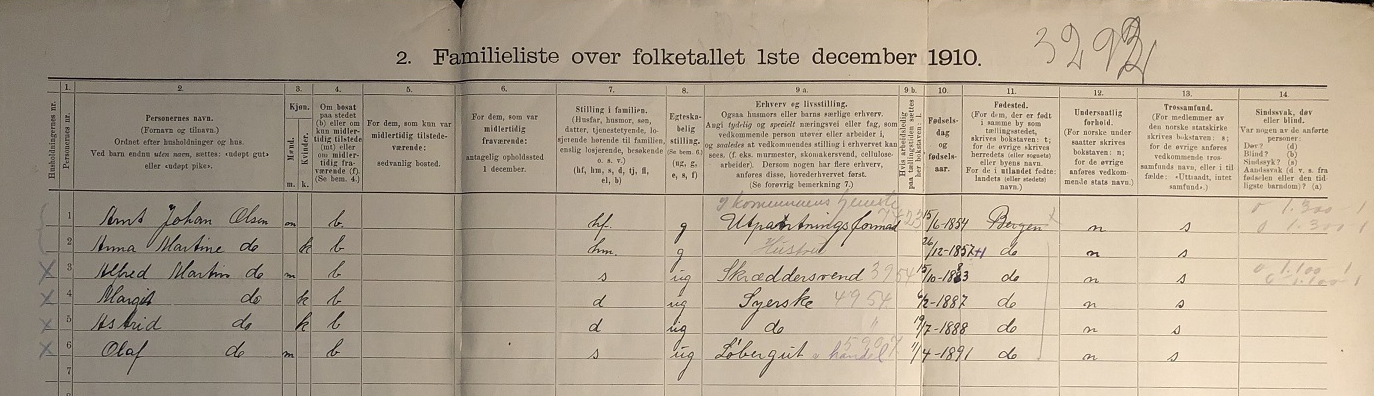 3292
2. Familieliste over folketallet 1ste december 1910.
Husholdningernes nr.
1. Personernes nr.
2. Personernes navn.
(Fornavn og tilnavn.)
Ordnet efter husholdninger og hus.
Ved barn endnu uden navn, sættes: «udøpt gut»
eller «udøpt pike».
3. Kjøn.
Mænd. Kvinder.
m. k.
4. Om bosat
paa stedet
(b) eller om
kun midler-
tidig tilstede
(mt) eller
om midler-
tidig fra-
værende (f).
(Se bem. 4.)
5. For dem, som kun var
midlertidig tilstede-
værende:
sedvanlig bosted.
6. For dem, som var
midlertidig
fraværende:
antagelig opholdssted
1 december.
7. Stilling i familien.
(Husfar, husmor, søn,
datter, tjenestetyende, lo-
sjerende hørende til familien,
enslig losjerende, besøkende
o. s. v.)
(hf, hm, s, d, tj, fl,
el, b)
8. Egteska-
belig
stilling.
(Se bem. 6.)
(ug, g,
e, s, f)
9 a. Erhverv og livsstilling.
Ogsaa husmors eller barns særlige erhverv.
Angi tydelig og specielt næringsvei eller fag, som
vedkommende person utøver eller arbeider i,
og saaledes at vedkommendes stilling i erhvervet kan
sees. (f. eks. murmester, skomakersvend, cellulose-
arbeider). Dersom nogen har flere erhverv,
anføres disse, hovederhvervet først.
(Se forøvrig bemerkning 7.)
9 b. Hvis arbeidsledig
paa tællingstiden sættes
her bokstaven: l.
10. Fødsels-
dag
og
fødsels-
aar.
11. Fødested.
(For dem, der er født
i samme by som
tællingsstedet,
skrives bokstaven: t;
for de øvrige skrives
herredets (eller sognets)
eller byens navn.
For de i utlandet fødte:
landets (eller stedets)
navn.)
12. Undersaatlig
forhold.
(For norske under
saatter skrives
bokstaven: n;
for de øvrige
anføres vedkom-
mende stats navn.)
13. Trossamfund.
(For medlemmer av
den norske statskirke
skrives bokstaven: s;
for de øvrige anføres
vedkommende tros-
samfunds navn, eller i til-
fælde: «Uttraadt, intet
samfund».)
14. Sindssvak, døv
eller blind.
Var nogen av de anførte
personer:
Døv? (d)
Blind? (b)
Sindssyk? (s)
Aandssvak (d v. s. fra
fødselen eller den tid-
ligste barndom)? (a)
I kommunens tjeneste
1 Arnt Johan Olsen m b. hf. g Utpantningsformand 15/6-1854 Bergen n s 0 1.300 - 1
2 Anna Martine do k b hm. g Hustru 26/12-1857 do n s
X 3 Alfred Martin do m b s ug Skræddersvend 3954 15/10-1883 do n s 0 1.100 1
X 4 Margit do k b d ug Syerske 4954 6/2-1887 do n s
X 5 Astrid do k b d ug do " 19/7-1888 do n s
X 6 Olaf do m b s ug Løbergut handel 11/4-1891 do n s
7